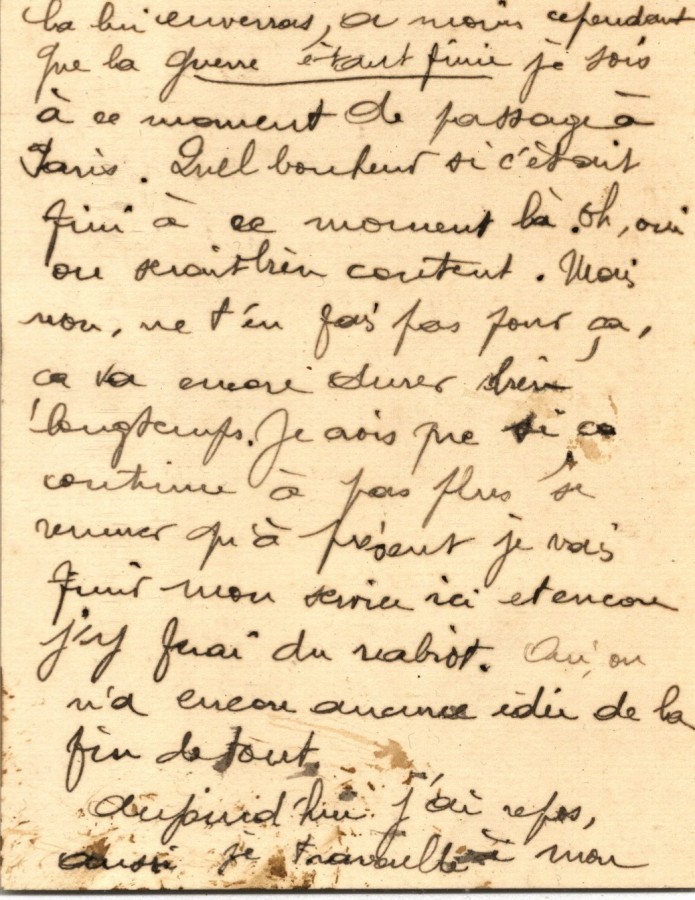 la lui enverras, à moins cependant
que la guerre étant finie je sois
à ce moment de passage à
Paris. Quel bonheur si c'était
fini à ce moment là. Oh, oui
on serait bien content. Mais
non, ne t'en fais pas pour ça,
ça va encore durer bien
longtemps. Je crois que si ça
continue à pas plus se
remuer qu'à présent je vais
finir mon service ici et encore
j'y ferai du rabiot. Oui, on
n'a encore aucune idée de la
fin de tout.
aujourd'hui j'ai repos,
aussi je travaille à mon